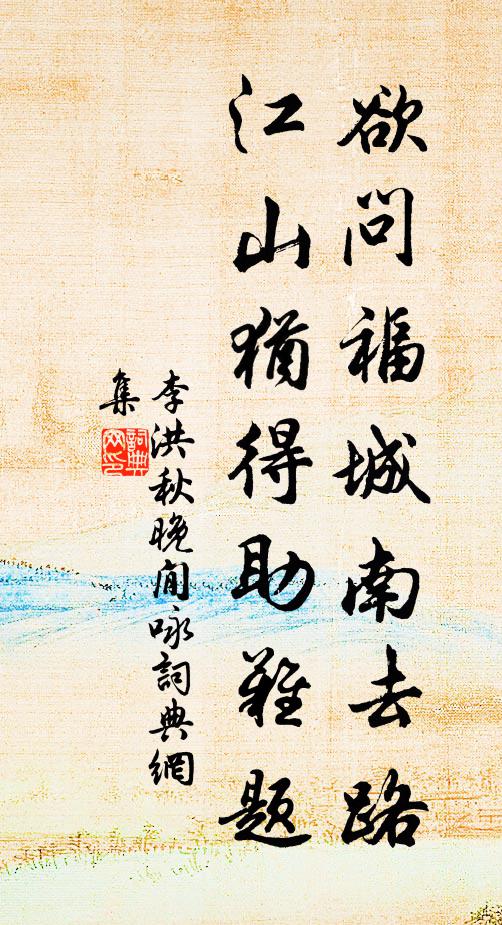 欲問福城南去路
江山猶得助難題
李洪秋晚閒咏詞典網
集
詞典